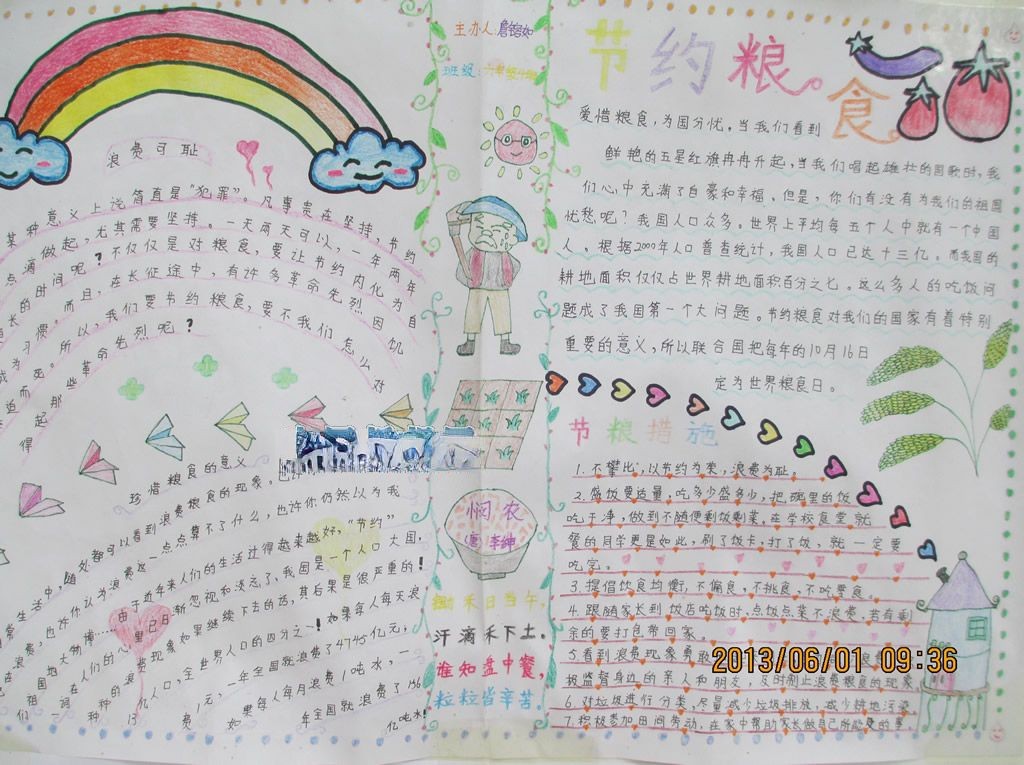 主办人:詹锘如
班级:六年级
节约粮食
爱惜粮食,为国分忧。当我们看到
鲜艳的五星红旗冉冉升起,当我们唱起雄壮的国歌时,我
们心中充满了自豪和幸福。但是,你们有没有为我们的祖国
忧愁呢?我国人口众多。世界上平均每五个人中就有一个中国
人。根据2000年人口普查统计,我国人口已达十三亿。而我国的
耕地面积仅仅占世界耕地面积百分之七。这么多人的吃饭问
题成了我国第一个大问题。节约粮食对我们的国家有着特别
重要的意义,所以联合国把每年的10月16日
定为世界粮食日。
节粮措施
1.不攀比,以节约为荣,浪费为耻。
2.盛饭要适量,吃多少盛多少,把碗里的饭
吃干净,做到不随便剩饭剩菜。在学校食堂就
餐的同学更是如此,刷了饭卡,打了饭,就一定要
吃完。
3.提倡饮食均衡,不偏食,不挑食,不吃零食。
4.跟随家长到饭店吃饭时,点饭点菜不浪费,若有剩
余的要打包带回家。
5.看到浪费现象勇敢
极监督身边的亲人和朋友,及时制止浪费粮食的现象
6.对垃圾进行分类,尽量减少垃圾排放,减少耕地污染
7.积极参加田间劳动,在家中帮助家长做自己所能及的事。
浪费可耻
某种意义上说简直是“犯罪”。凡事贵在坚持,节约
点滴做起,尤其需要坚持。一天两天可以,一年两年
长的时间呢?不仅仅是对粮食,要让节约内化为自
为习惯。而且,在长征途中,有许多革命先烈因饥
死。所以,我们要节约粮食,要不我们怎么对
得起那些革命先烈呢?
珍惜粮食的意义
生活中,随处都可以看到浪费粮食的现象。也许你仍然以为我
浪费,也许你认为浪费这一点点算不了什么,也许你仍然以为我
国地大物博……由于近年来人们的生活过得越来越好,“节约”
一词在人们的心里日日渐忽视和淡忘了,我国是一个人口大国,
悯农
唐 李绅
锄禾日当午,
汗滴禾下土。
谁知盘中餐,
粒粒皆辛苦。
2013/06/01 09:36